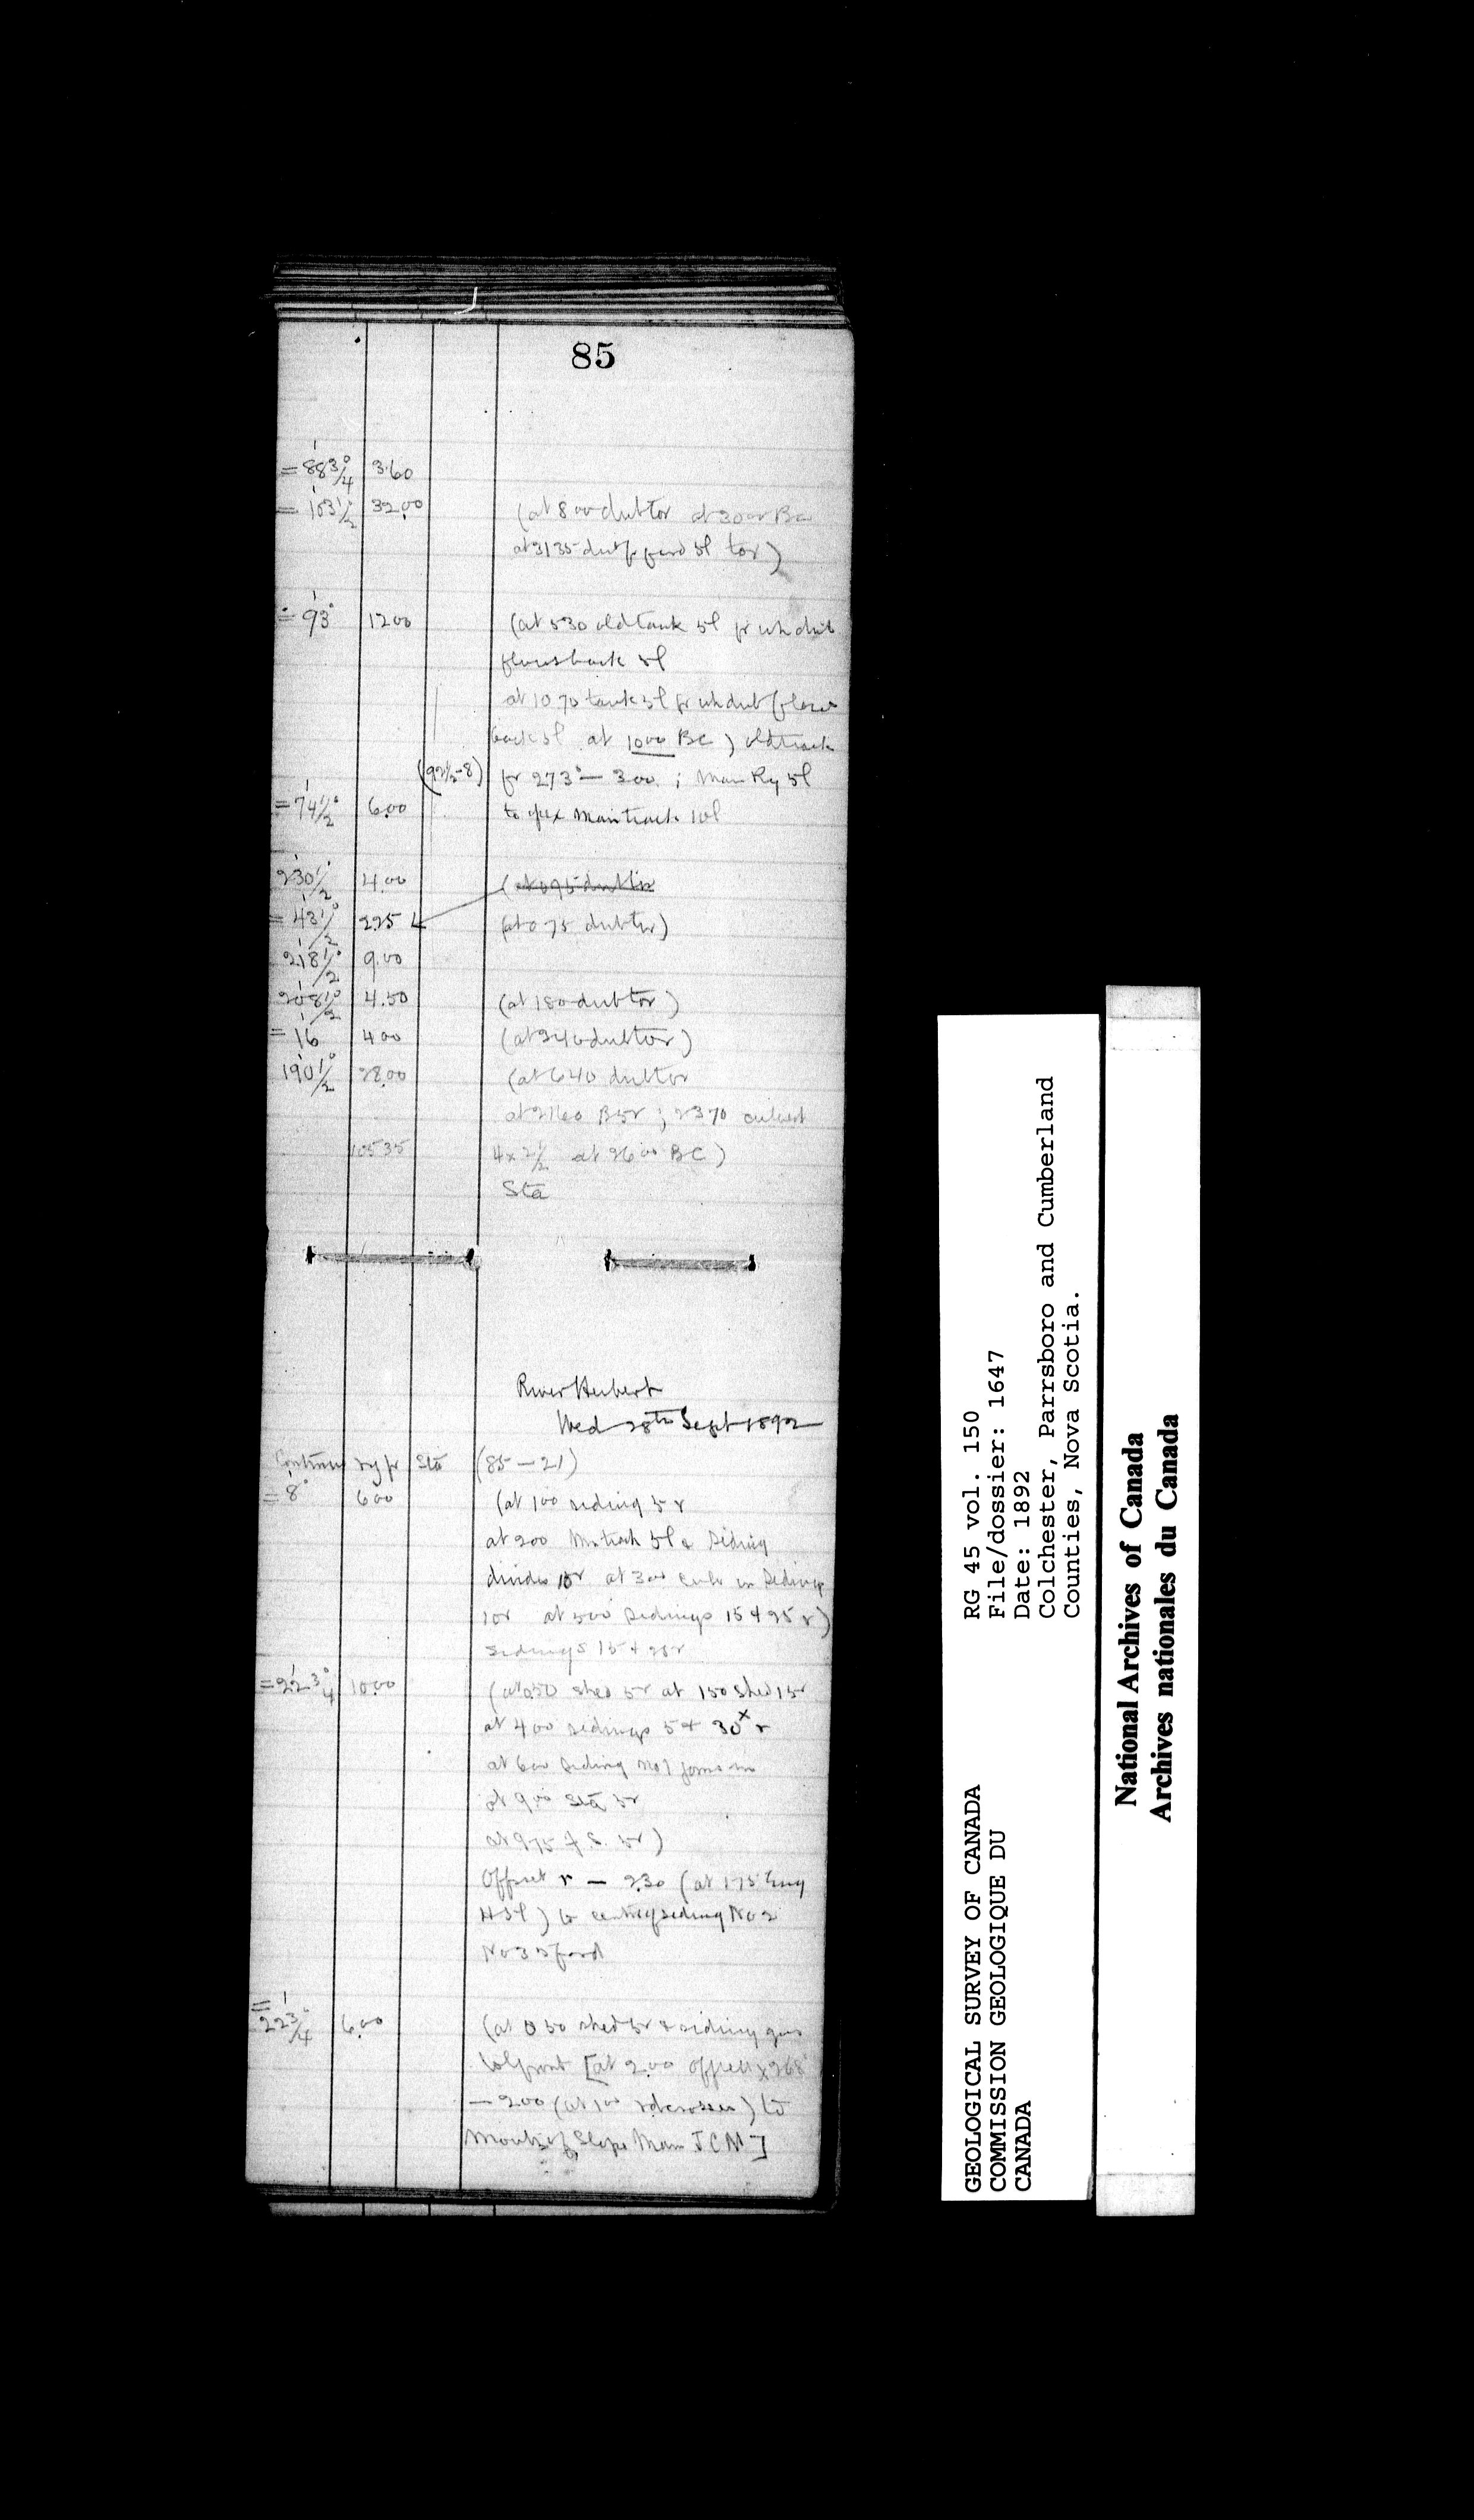 85
= 88 3/4° 3.60
= 103 1/2° 32.00 (at 800 dub to r at 3000 BC
at 3135 dub fr pond 5l to r)
= 93° 1200 (at 530 old tank 5l fr wh dub
flows back 5l
at 1070 tank 5l fr wh dub flows
back 5l at 1000 BC) old track
(92 1/2-8) fr 273° — 300 ; Main Ry 5l
= 74 1/2° 6.00 to Main track 10l
230 1/2° 4.00
= 43 1/2° 225 (at 075 dub to r)
218 1/2° 9.00
208 1/2° 4.50 (at 180 dub to r)
= 16 400 (at 340 dub to r)
190 1/2° 28.00 (at 640 dub to r
at 2160 B 5r ; 2370 culvert
10535 4 x 2 1/2 at 2600 BC)
Sta
River Hebert
Wed 28th Sept 1892
Continue ry fr Sta (85-21)
= 8° 600 (at 100 siding 5 r
at 200 M track 5l & Siding
divides 15r at 300 in Sidings
10r at 500 Sidings 15 & 25 r)
Sidings 15 & 25r
= 22 3/4° 10.00 (at 050 shed 5r at 150 shed 15r
at 400 sidings 5 & 30x r
at 600 Siding No 1 joins in
at 900 Sta 5r
at 975 f.S. 5r)
Offset r — 230 (at 175 Eng
H 5l) to centre of siding No 2
No 3
= 22 3/4° 6.00 (at 050 shed 5r & siding goes
[at 200 offset 268°
— 200 (at 100 rd crosses) to
Mouth of Slope Main J C M]
GEOLOGICAL SURVEY OF CANADA
COMMISSION GEOLOGIQUE DU
CANADA
RG 45 vol. 150
File/dossier: 1647
Date: 1892
Colchester, Parrsboro and Cumberland
Counties, Nova Scotia.
National Archives of Canada
Archives nationales du Canada